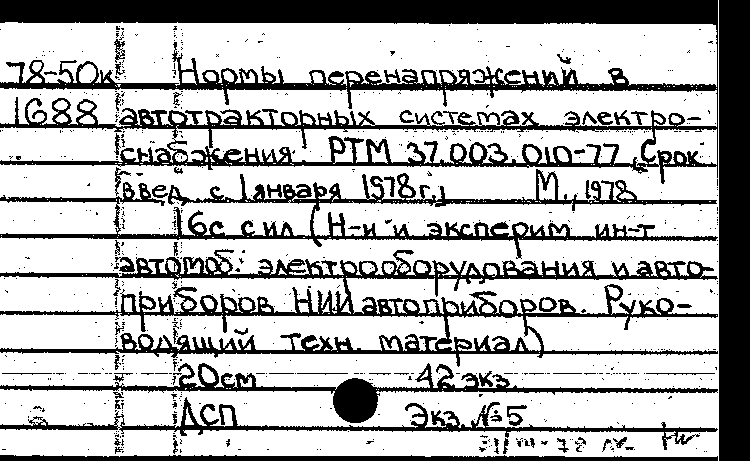 78-50к Нормы перенапряжений в
1688 автотракторных системах электро-
снабжения. РТМ 37.003.010-77. Срок
введ. с 1 января 1978г.] М., 1978
16с с ил (Н-и и эксперим ин-т
автомоб. электрооборудования и авто-
приборов НИИ автоприборов. Руко-
водящий техн. материал)
20см 42 экз
ДСП Экз. №5
31/VIII-78